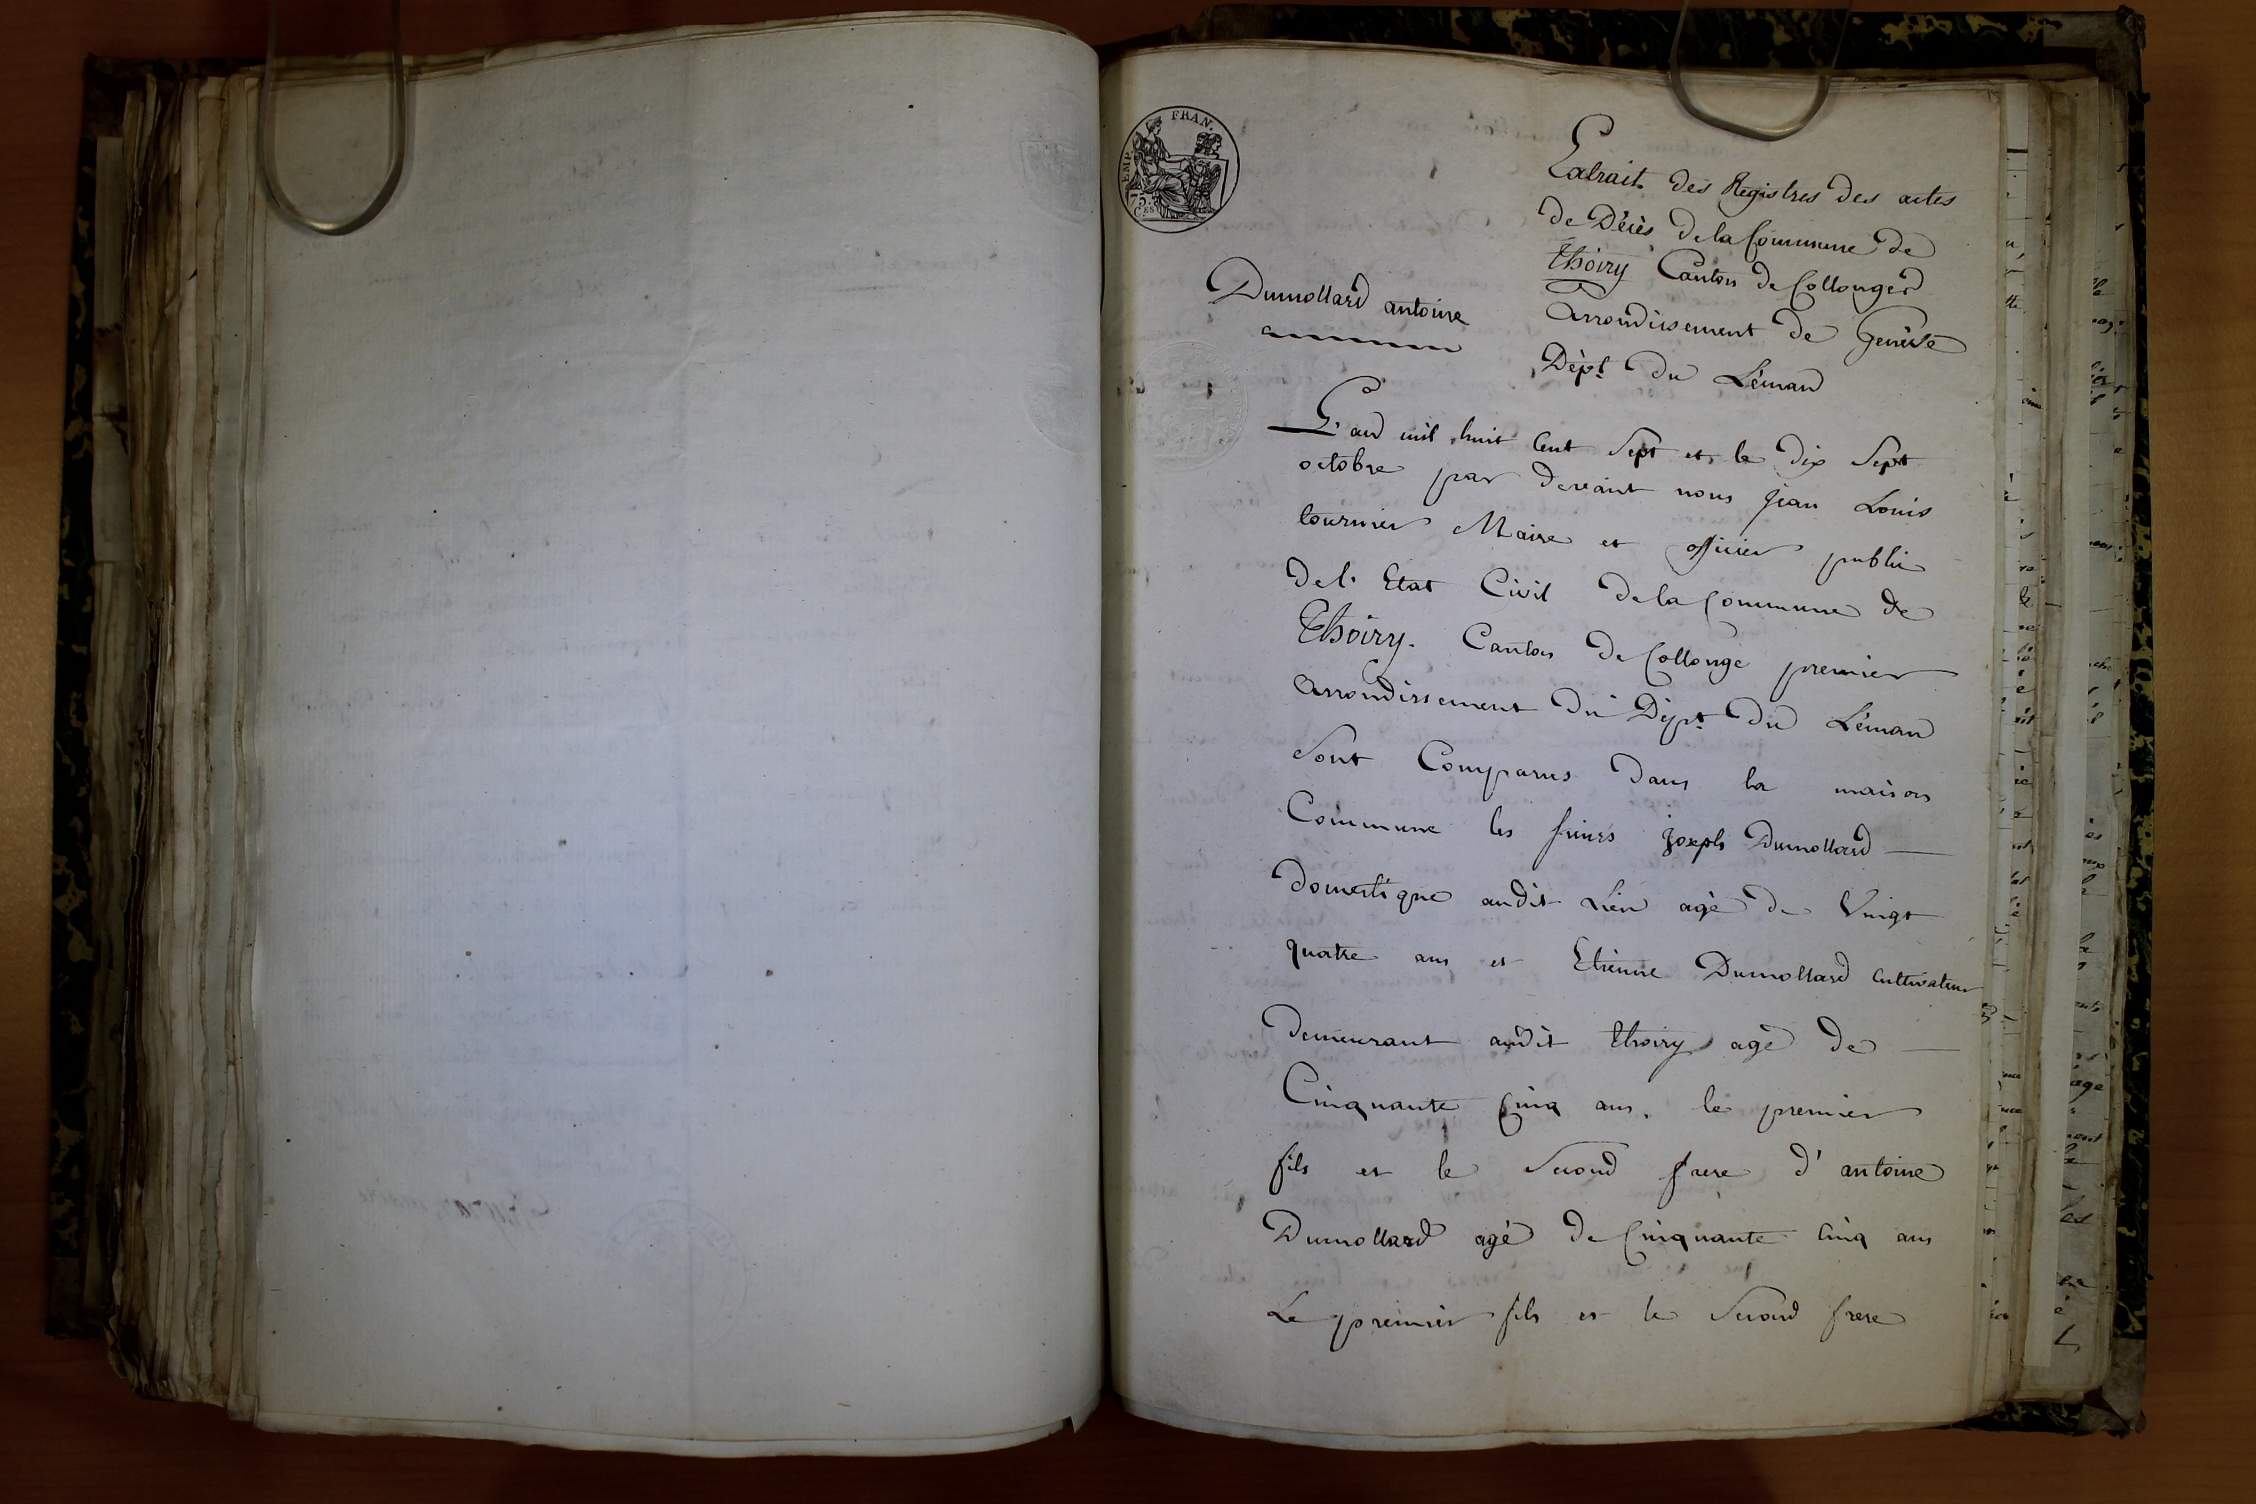 EMP. FRAN.
75.
Ces
Extrait des Registres des actes
de Décès de la Commune de
thoiry Canton de Collonges
Arrondissement de Genève
Dépt du Léman
Dumollard antoine
L'an mil huit Cent Sept et le dix Sept
octobre par devant nous jean Louis
tournier Maire et officier public
de l'Etat Civil de la Commune de
Thoiry. Canton de Collonge premier
Arrondissement du Dépt du Léman
Sont Comparus dans la maison
Commune les sieurs joseph Dumollard
domestique audit Lieu agé de Vingt
quatre ans et Etienne Dumollard cultivateur
demeurant audit thoiry agé de
Cinquante Cinq ans, le premier
fils et le Second frere d'antoine
Dumollard agé de Cinquante Cinq ans
Le premier fils et le Second frere